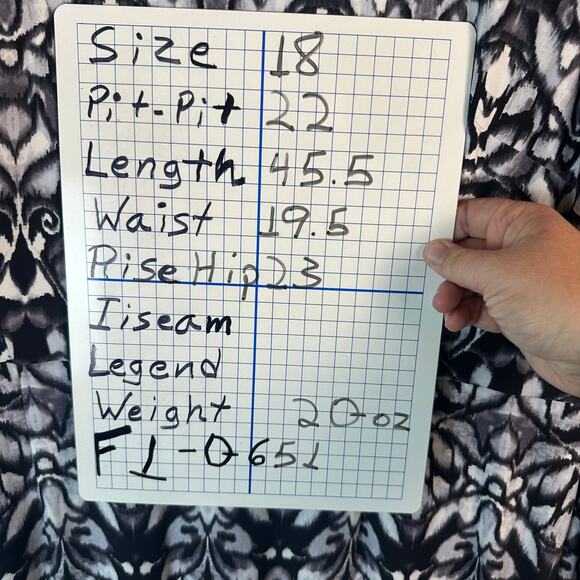 Size 18
Pit-Pit 22
Length 45.5
Waist 19.5
Rise Hip 23
Iiseam
Legend
Weight 20 oz
F1-0651